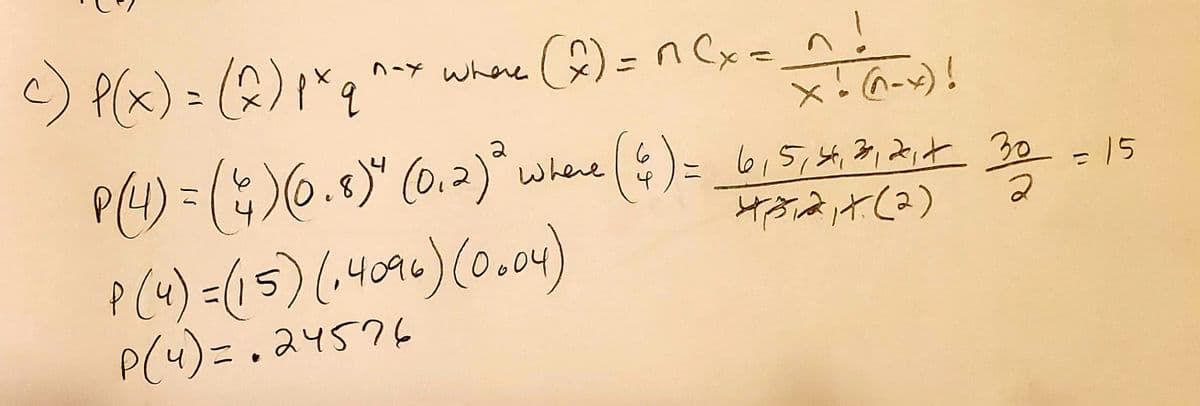 c) P(x) = (n x) p^x q^n-x where (n x) = n Cx = n! / x! (n-x)!
P(4) = (6 4)(0.8)^4 (0.2)^2 where (6 4) = 6,5,4,3,2,1 / 4,3,2,1.(2) 30 / 2 = 15
P(4) = (15)(.4096)(0.04)
P(4) = .24576